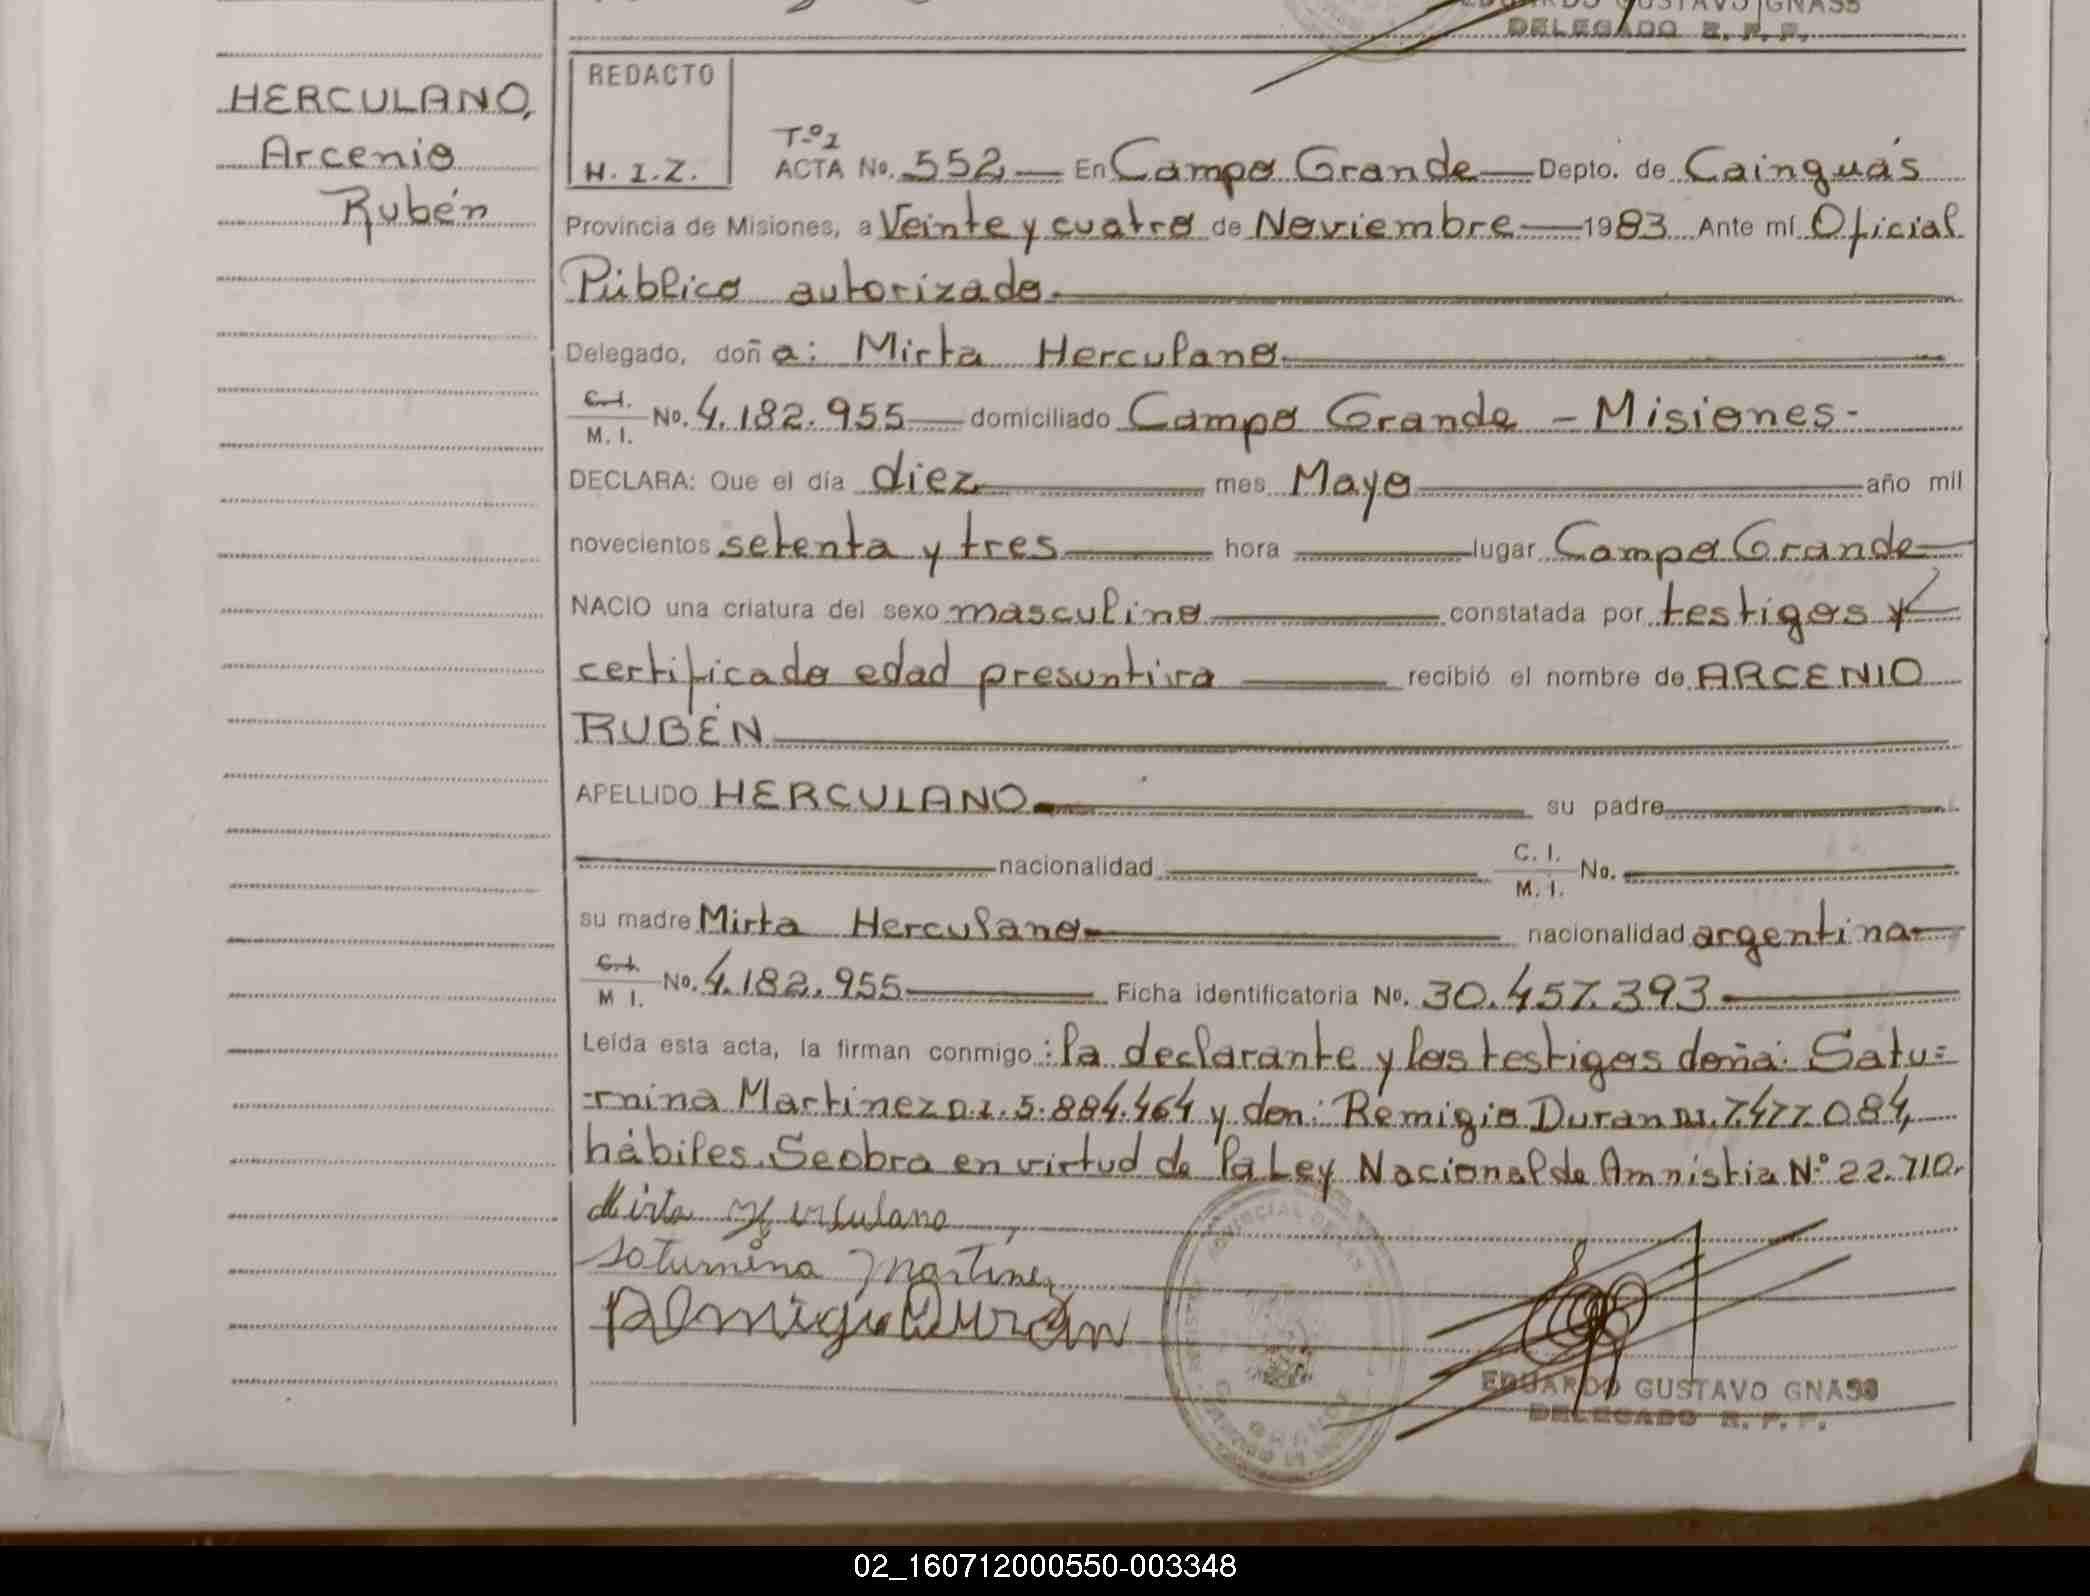 EDUARDO GUSTAVO GNASS
DELEGADO R. P. P.
HERCULANO,
Arcenio
Rubén
REDACTO
H. I. Z.
Tº 1
ACTA No. 552 En Campo Grande Depto. de Cainguás
Provincia de Misiones, a Veinte y cuatro de Noviembre 1983 Ante mí Oficial
Público autorizado
Delegado, doña: Mirta Herculano
C.I. M. I. No. 4.182.955 domiciliado Campo Grande - Misiones-
DECLARA: Que el día diez mes Mayo año mil
novecientos setenta y tres hora lugar Campo Grande
NACIO una criatura del sexo masculino constatada por testigos y
certificado edad presuntiva recibió el nombre de ARCENIO
RUBÉN
APELLIDO HERCULANO su padre
nacionalidad C. I. M. I. No.
su madre Mirta Herculano nacionalidad argentina
C.I. M I. No. 4.182.955 Ficha identificatoria No. 30.457.393
Leída esta acta, la firman conmigo: la declarante y los testigos doña: Satu=
=rnina Martinez D.I. 5.884.464 y don: Remigio Duran D.I. 7.477.084,
hábiles. Se obra en virtud de la Ley Nacional de Amnistia Nº 22.710.
Mirta Herculano
Saturnina Martinez
Remigio Duran
EDUARDO GUSTAVO GNASS
DELEGADO R. P. P.
02_160712000550-003348